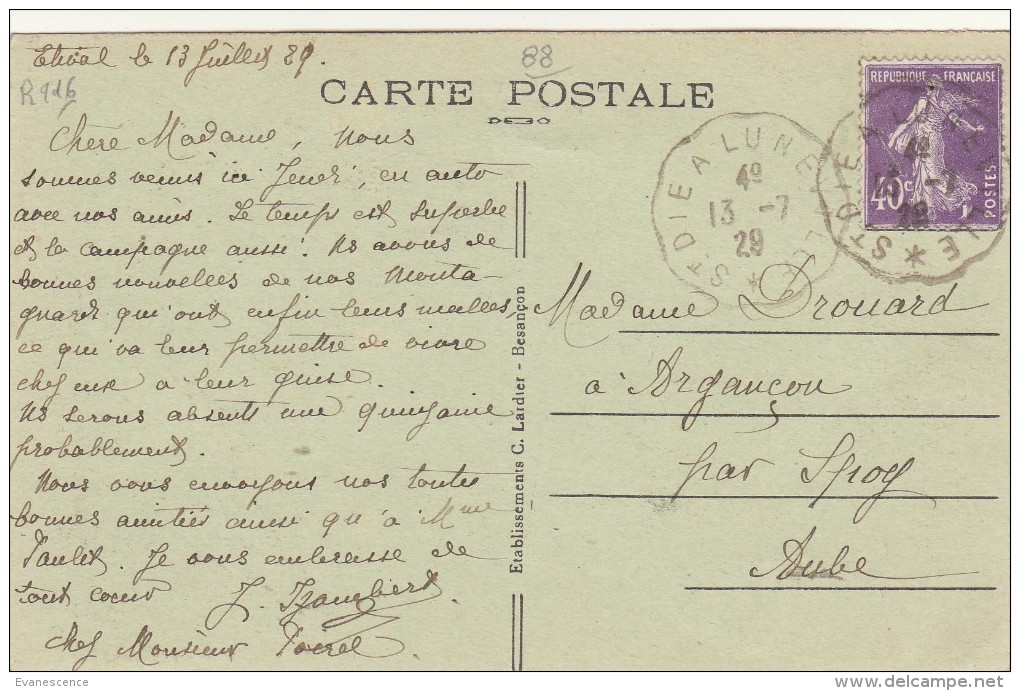 Etival le 13 Juillet 29.
88
R 926
CARTE POSTALE
Chère Madame, nous
sommes venus ici Jeudi, en auto
avec nos amis. Le temps est superbe
et la campagne aussi. Ns avons de
bonnes nouvelles de nos Monta-
gnards qui ont enfin leurs malles,
ce qui va leur permettre de vivre
chez eux à leur guise.
Ns serons absents une quinzaine
probablement.
Nous vous envoyons nos toutes
bonnes amitiés ainsi qu'à Mme
Paulet. Je vous embrasse de
tout coeur
chez Monsieur
Etablissements C. Lardier - Besançon
REPUBLIQUE FRANÇAISE
40c
POSTES
ST DIE A LUNEVILLE
4º
13 -7
29
ST DIE A LUNEVILLE
4º
13 -7
29
Madame Drouard
à Argançon
par Spoy
Aube
Evanescence
www.delcampe.net